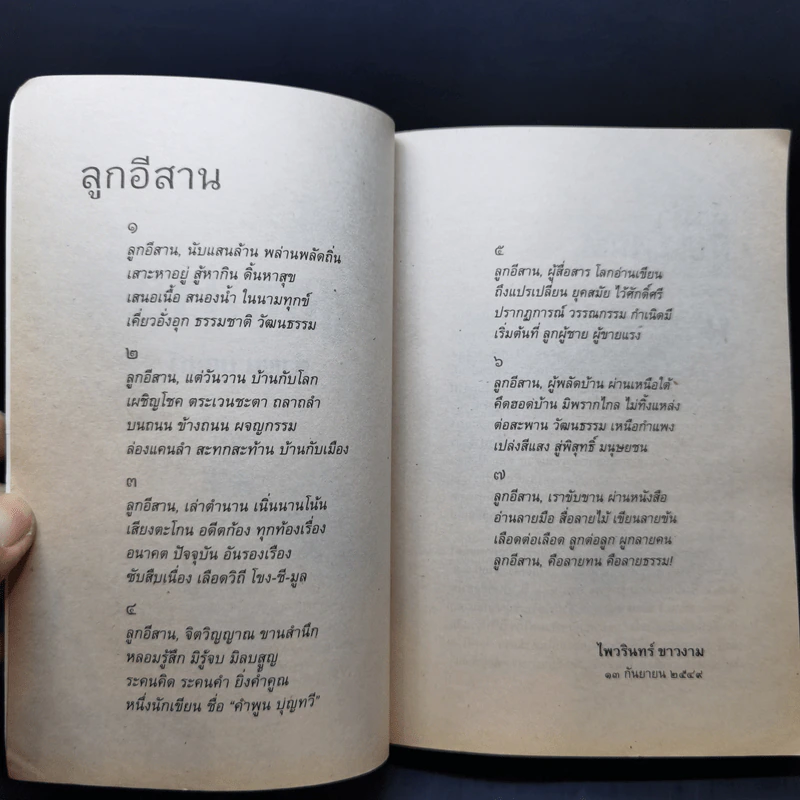 ลูกอีสาน
๑
ลูกอีสาน, นับแสนล้าน พล่านพลัดถิ่น
เสาะหาอยู่ สู้หากิน ดิ้นหาสุข
เสนอเนื้อ สนองน้ำ ในนามทุกข์
เคี่ยวอั่งอุก ธรรมชาติ วัฒนธรรม
๒
ลูกอีสาน, แต่วันวาน บ้านกับโลก
เผชิญโชค ตระเวนชะตา ถลาถลำ
บนถนน ข้างถนน ผจญกรรม
ล่องแคนลำ สะทกสะท้าน บ้านกับเมือง
๓
ลูกอีสาน, เล่าตำนาน เนิ่นนานโน้น
เสียงตะโกน อดีตก้อง ทุกท้องเรื่อง
อนาคต ปัจจุบัน อันรองเรือง
ขับสืบเนื่อง เลือดวิถี โขง-ชี-มูล
๔
ลูกอีสาน, จิตวิญญาณ ขานสำนึก
หลอมรู้สึก มิรู้จบ มิลบสูญ
ระคนคิด ระคนคำ ยิ่งค้ำคูณ
หนึ่งนักเขียน ชื่อ “คำพูน บุญทวี”
๕
ลูกอีสาน, ผู้สื่อสาร โลกอ่านเขียน
ถึงแปรเปลี่ยน ยุคสมัย ไว้ศักดิ์ศรี
ปรากฏการณ์ วรรณกรรม กำเนิดมี
เริ่มต้นที่ ลูกผู้ชาย ผู้ขายแรง
๖
ลูกอีสาน, ผู้พลัดบ้าน ผ่านเหนือใต้
คึดฮอดบ้าน มิพรากไกล ไม่ทิ้งแหล่ง
ต่อสะพาน วัฒนธรรม เหนือกำแพง
เปล่งสีแสง สู่พิสุทธิ์ มนุษยชน
๗
ลูกอีสาน, เราขับขาน ผ่านหนังสือ
อ่านลายมือ สื่อลายไม้ เขียนลายขัน
เลือดต่อเลือด ลูกต่อลูก ผูกลายคน
ลูกอีสาน, คือลายทน คือลายธรรม!
ไพวรินทร์ ขาวงาม
๑๓ กันยายน ๒๕๔๙